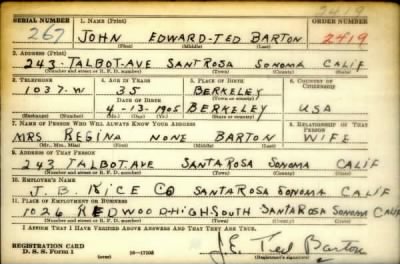 2419
SERIAL NUMBER 1. NAME (Print) ORDER NUMBER
267 JOHN EDWARD-TED BARTON 2419
(First) (Middle) (Last)
2. ADDRESS (Print)
243-TALBOT-AVE SANTROSA SONOMA CALIF
(Number and street) (Town) (County) (State)
3. TELEPHONE 4. AGE IN YEARS 5. PLACE OF BIRTH 6. COUNTRY OF CITIZENSHIP
1037-W 35 BERKELEY
DATE OF BIRTH (Town or county)
4-13-1905 BERKELEY USA
(Exchange) (Number) (Mo.) (Day) (Yr.) (State or country)
7. NAME OF PERSON WHO WILL ALWAYS KNOW YOUR ADDRESS 8. RELATIONSHIP OF THAT PERSON
MRS REGINA NONE BARTON WIFE
(Mr., Mrs., Miss) (First) (Middle) (Last)
9. ADDRESS OF THAT PERSON
243 TALBOT.AVE SANTAROSA SONOMA CALIF
(Number and street) (Town) (County) (State)
10. EMPLOYER'S NAME
J. B. RICE CO SANTAROSA SONOMA CALIF
11. PLACE OF EMPLOYMENT OR BUSINESS
1026 REDWOOD-HIGHSOUTH SANTAROSA SONOMA CALIF
(Number and street) (Town) (County) (State)
I AFFIRM THAT I HAVE VERIFIED ABOVE ANSWERS AND THAT THEY ARE TRUE.
REGISTRATION CARD
D. S. S. Form 1 J.E. Ted Barton